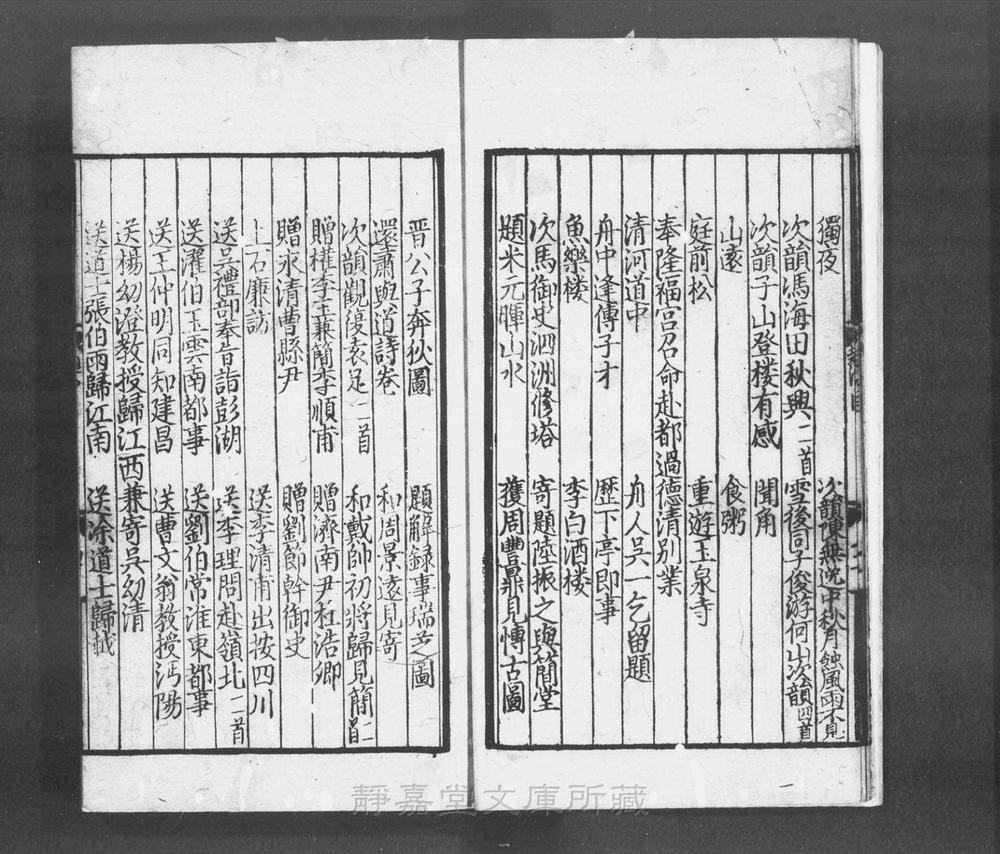 獨夜　次韻陳無逸中秋月蝕風雨不見
次韻馮海田秋興二首　雪後同子俊游何山次韻四首
次韻子山登楼有感　聞角
山遠　食粥
庭前松　重遊玉泉寺
奉隆福宮召命赴都過德清別業
清河道中　舟人吳一乞留題
舟中逢傅子才　歷下亭即事
魚樂楼　李白酒楼
次馬御史泗洲修塔　寄題陸振之與簡堂
題米元暉山水　獲周豐鼎見愽古圖
晋公子奔狄圖　題解錄事瑞芝圖
還蕭與道詩卷　和周景遠見寄
次韻觀復表足二首　和戴帥初將歸見簡二首
贈權李玉兼簡李順甫　贈濟南尹杜浩卿
贈永清曹縣尹　贈劉節幹御史
上石廉訪　送李清甫出按四川
送吳禮部奉旨詣彭湖　送李理問赴嶺北二首
送濯伯玉雲南都事　送劉伯常淮東都事
送王仲明同知建昌　送曹文翁教授沔陽
送楊幼澄教授歸江西兼寄吳幼清
送道士張伯雨歸江南　送凃道士歸越
靜嘉堂文庫所藏